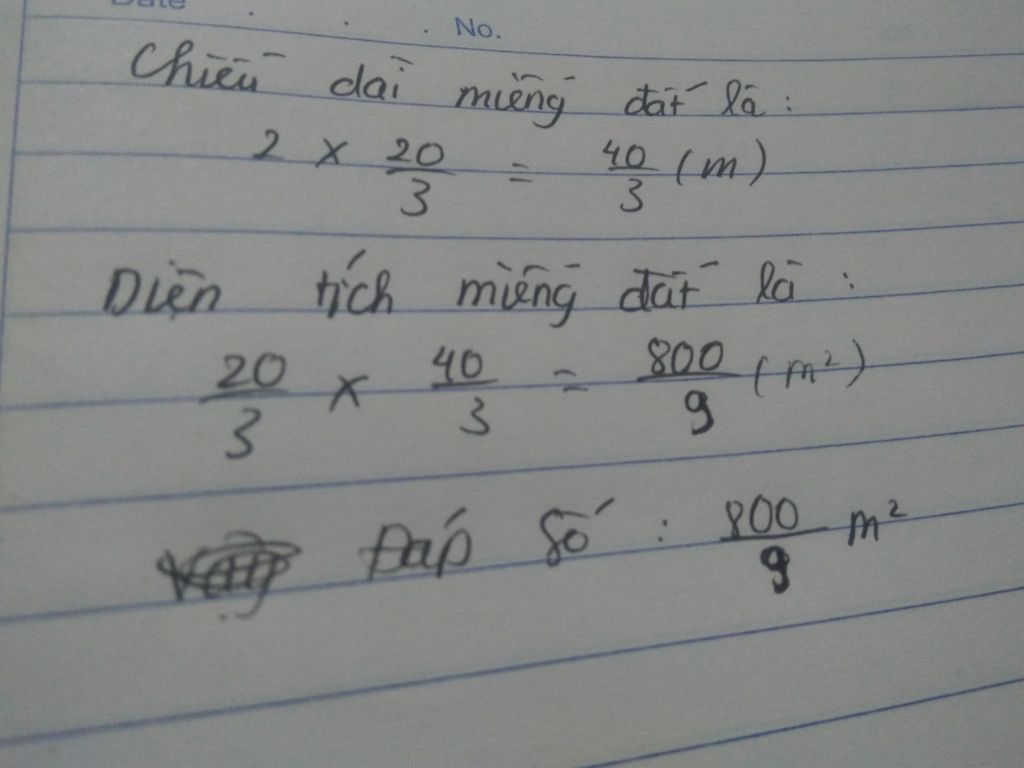 Date . . . No.
Chiều dài miếng đất là :
2 × 20/3 = 40/3 (m)
Diện tích miếng đất là :
20/3 × 40/3 = 800/9 (m²)
Đáp số : 800/9 m²